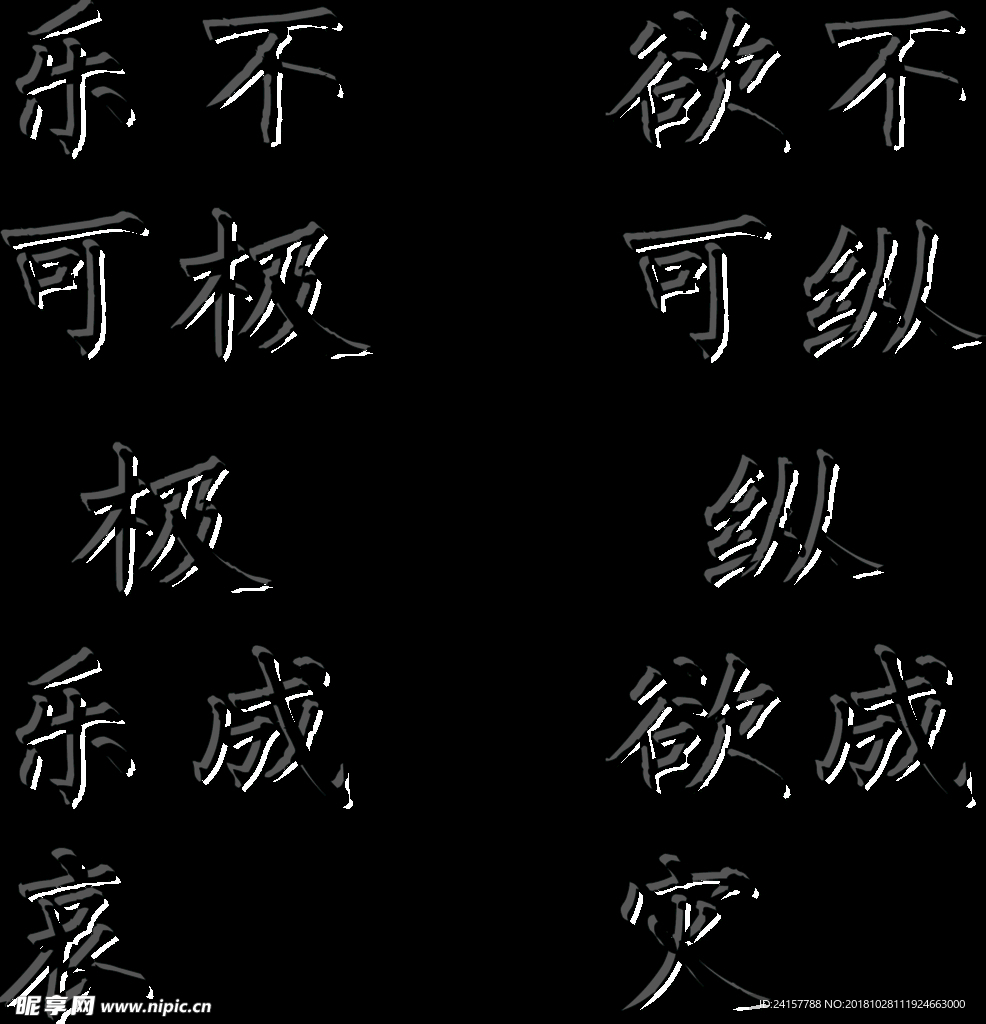 乐不 欲不
可极 可纵
极 纵
乐成 欲成
衰 灾
昵享网 www.nipic.cn
ID:24157788 NO:20181028111924663000